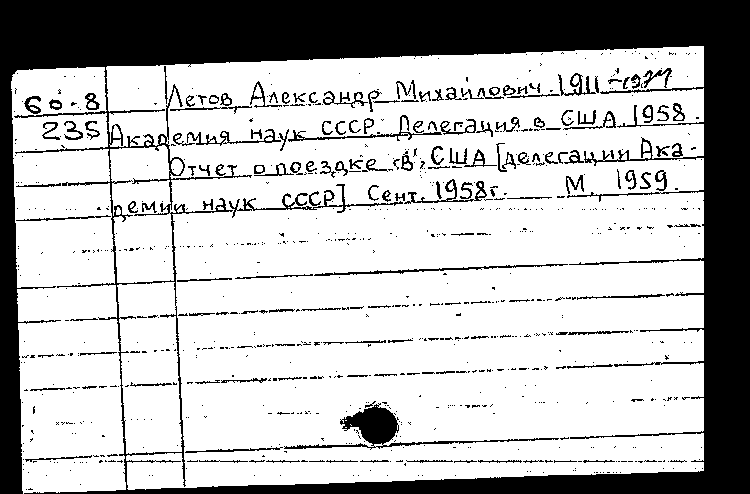 60-8 Летов, Александр Михайлович. 1911-
235 Академия наук СССР. Делегация в США. 1958.
Отчет о поездке "в" США [делегации Ака-
демии наук СССР]. Сент. 1958г. М., 1959.